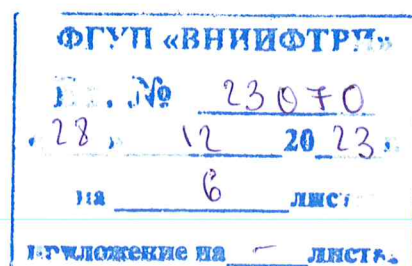 ФГУП «ВНИИФТРИ»
№ 23070
28 12 2023
на 6 лист
приложение на - листа.